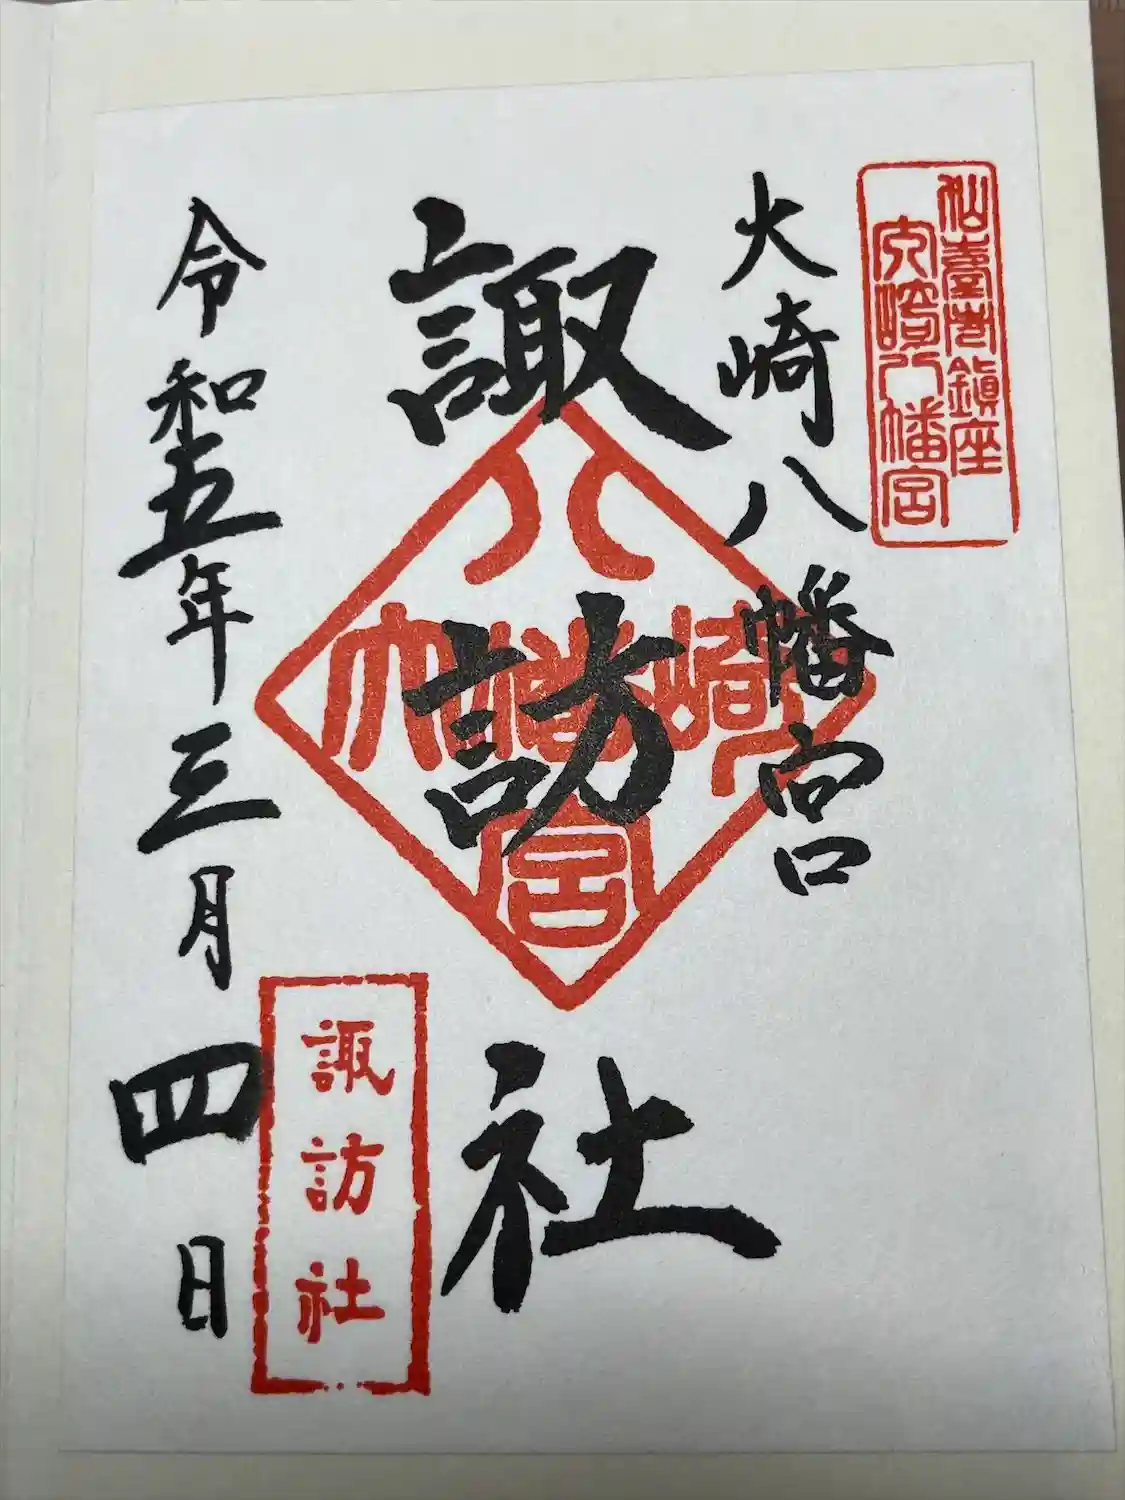 仙臺市鎮座
大崎八幡宮
大崎八幡宮
諏訪社
八
大幡崎
宮
諏訪社
令和五年三月四日